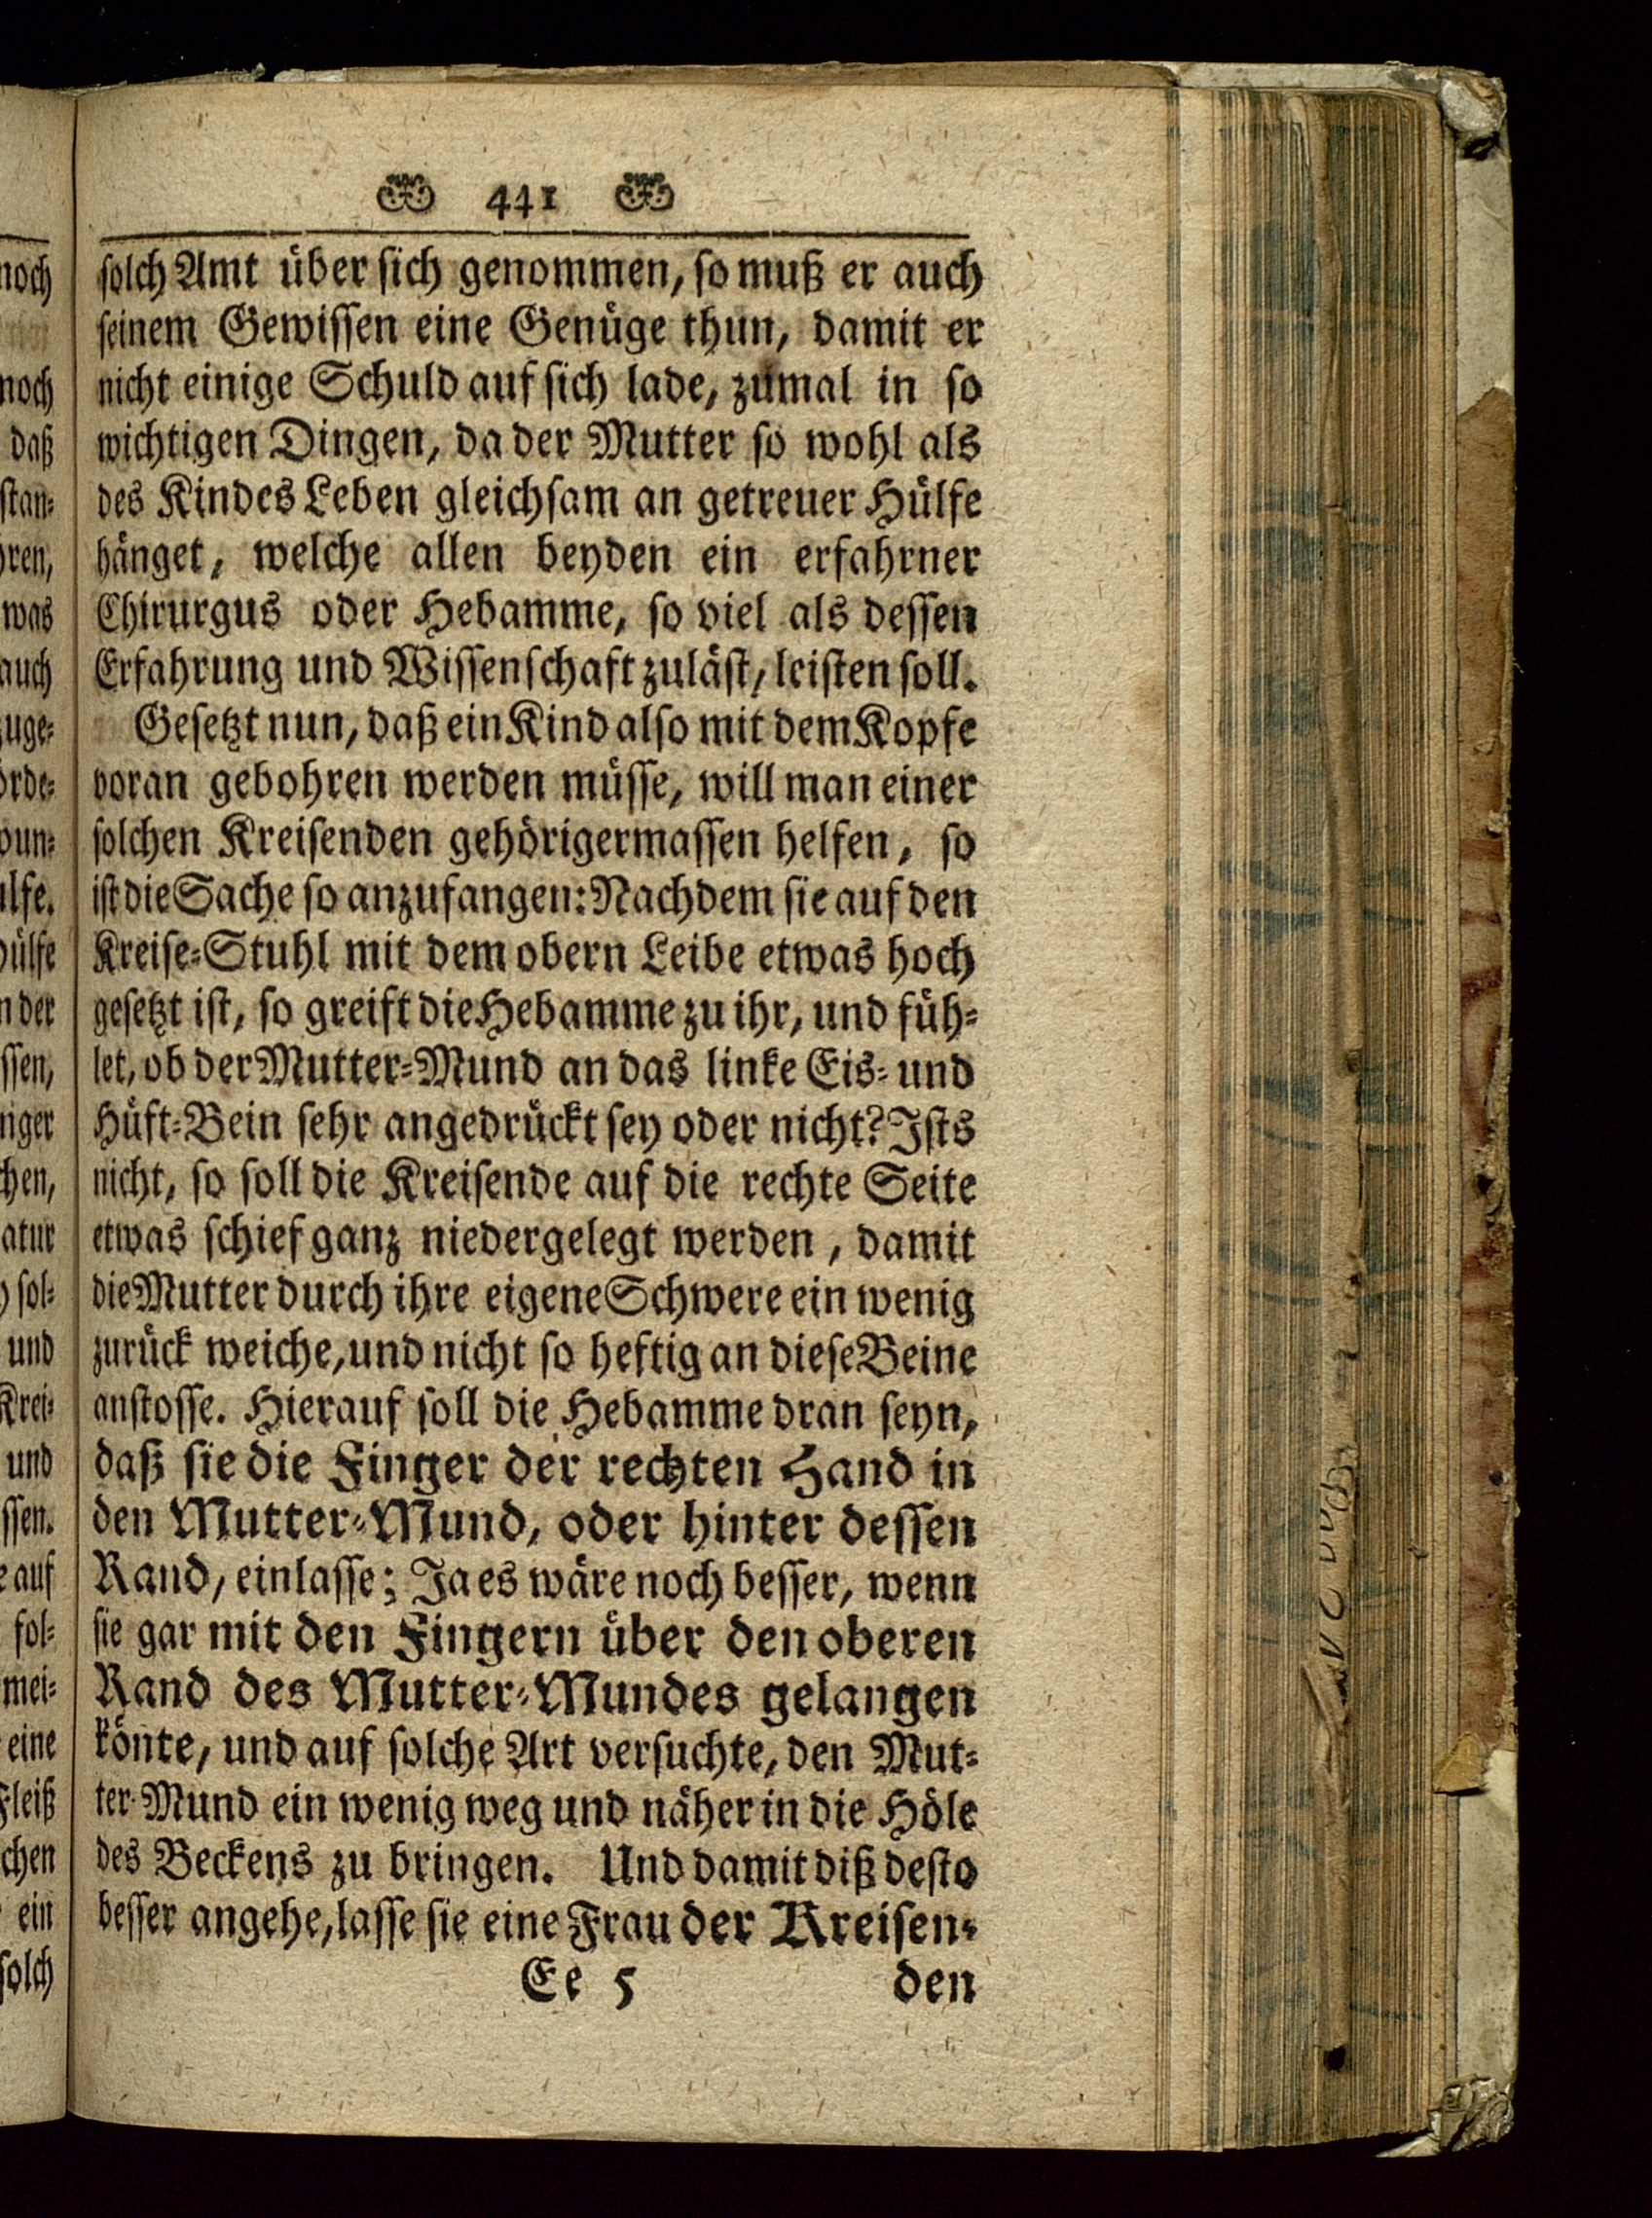 441
solch Amt über sich genommen, so muß er auch
seinem Gewissen eine Genüge thun, damit er
nicht einige Schuld auf sich lade, zumal in so
wichtigen Dingen, da der Mutter so wohl als
des Kindes Leben gleichsam an getreuer Hülfe
hänget, welche allen beyden ein erfahrner
Chirurgus oder Hebamme, so viel als dessen
Erfahrung und Wissenschaft zuläst, leisten soll.
Gesetzt nun, daß ein Kind also mit dem Kopfe
voran gebohren werden müsse, will man einer
solchen Kreisenden gehörigermassen helfen, so
ist die Sache so anzufangen: Nachdem sie auf den
Kreise-Stuhl mit dem obern Leibe etwas hoch
gesetzt ist, so greift die Hebamme zu ihr, und füh-
let, ob der Mutter-Mund an das linke Eis- und
Hüft-Bein sehr angedrückt sey oder nicht? Ists
nicht, so soll die Kreisende auf die rechte Seite
etwas schief ganz niedergelegt werden, damit
die Mutter durch ihre eigene Schwere ein wenig
zurück weiche, und nicht so heftig an diese Beine
anstosse. Hierauf soll die Hebamme dran seyn,
daß sie die Finger der rechten Hand in
den Mutter-Mund, oder hinter dessen
Rand, einlasse; Ja es wäre noch besser, wenn
sie gar mit den Fingern über den oberen
Rand des Mutter-Mundes gelangen
könte, und auf solche Art versuchte, den Mut-
ter-Mund ein wenig weg und näher in die Höle
des Beckens zu bringen. Und damit diß desto
besser angehe, lasse sie eine Frau der Kreisen-
Ee 5 den